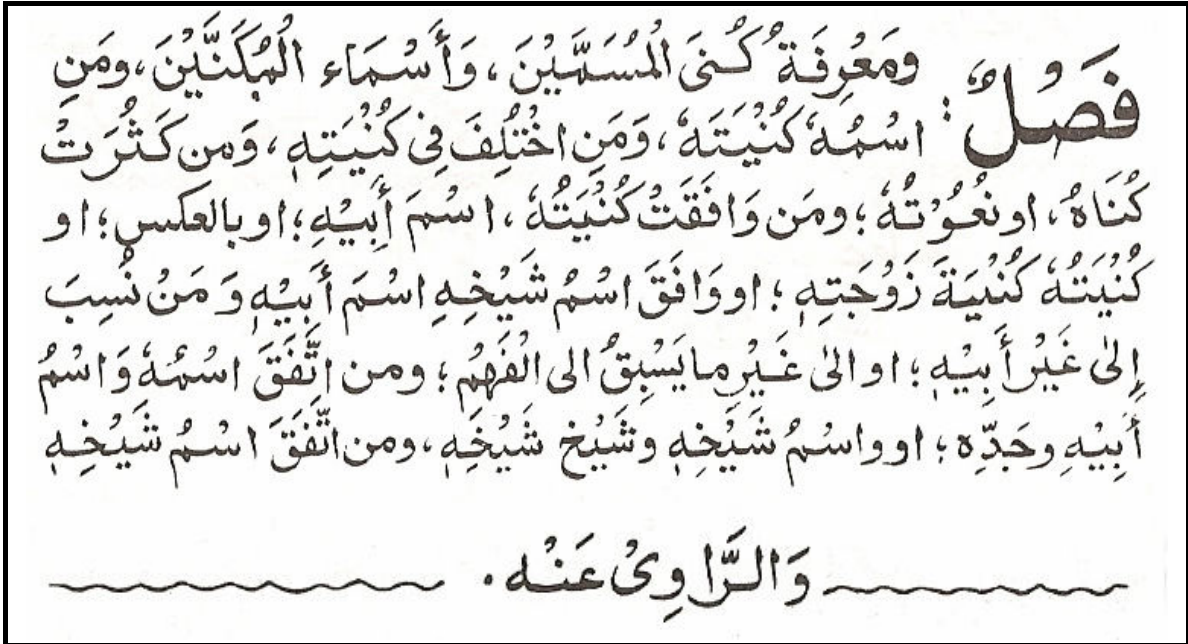 فَصْلٌ: وَمَعْرِفَةُ كُنَى الْمُسَمَّيْنَ، وَأَسْمَاء الْمُكَنَّيْنَ، وَمَنِ
اسْمُهٗ كُنْيَتَهٗ، وَمَنِ اخْتُلِفَ فِي كُنْيَتِهٖ، وَمن كَثُرَتْ
كُنَاهُ، او نُعُوْتُهٗ؛ ومَن وَافَقَتْ كُنْيَتُهٗ، اسْمَ أَبِيْهِ؛ او بالعكسِ؛ او
كُنْيَتُهٗ كُنْيَةَ زَوْجَتِهٖ؛ او وَافَقَ اسْمُ شَيْخِهِ اسْمَ أَبِيْهِ وَ مَنْ نُسِبَ
إِلىٰ غَيْرِ أَبِيْهِ؛ او الىٰ غَيْرِ ما يَسْبِقُ الى الْفَهْمِ؛ ومن اتَّفَقَ اسْمُهٗ وَاسْمُ
أَبِيْهِ وجَدِّهٖ؛ او واسْمُ شَيْخِهٖ وشَيْخِ شَيْخِهٖ، ومن اتَّفَقَ اسْمُ شَيْخِهٖ
وَالرَّاوِىْ عَنْه.